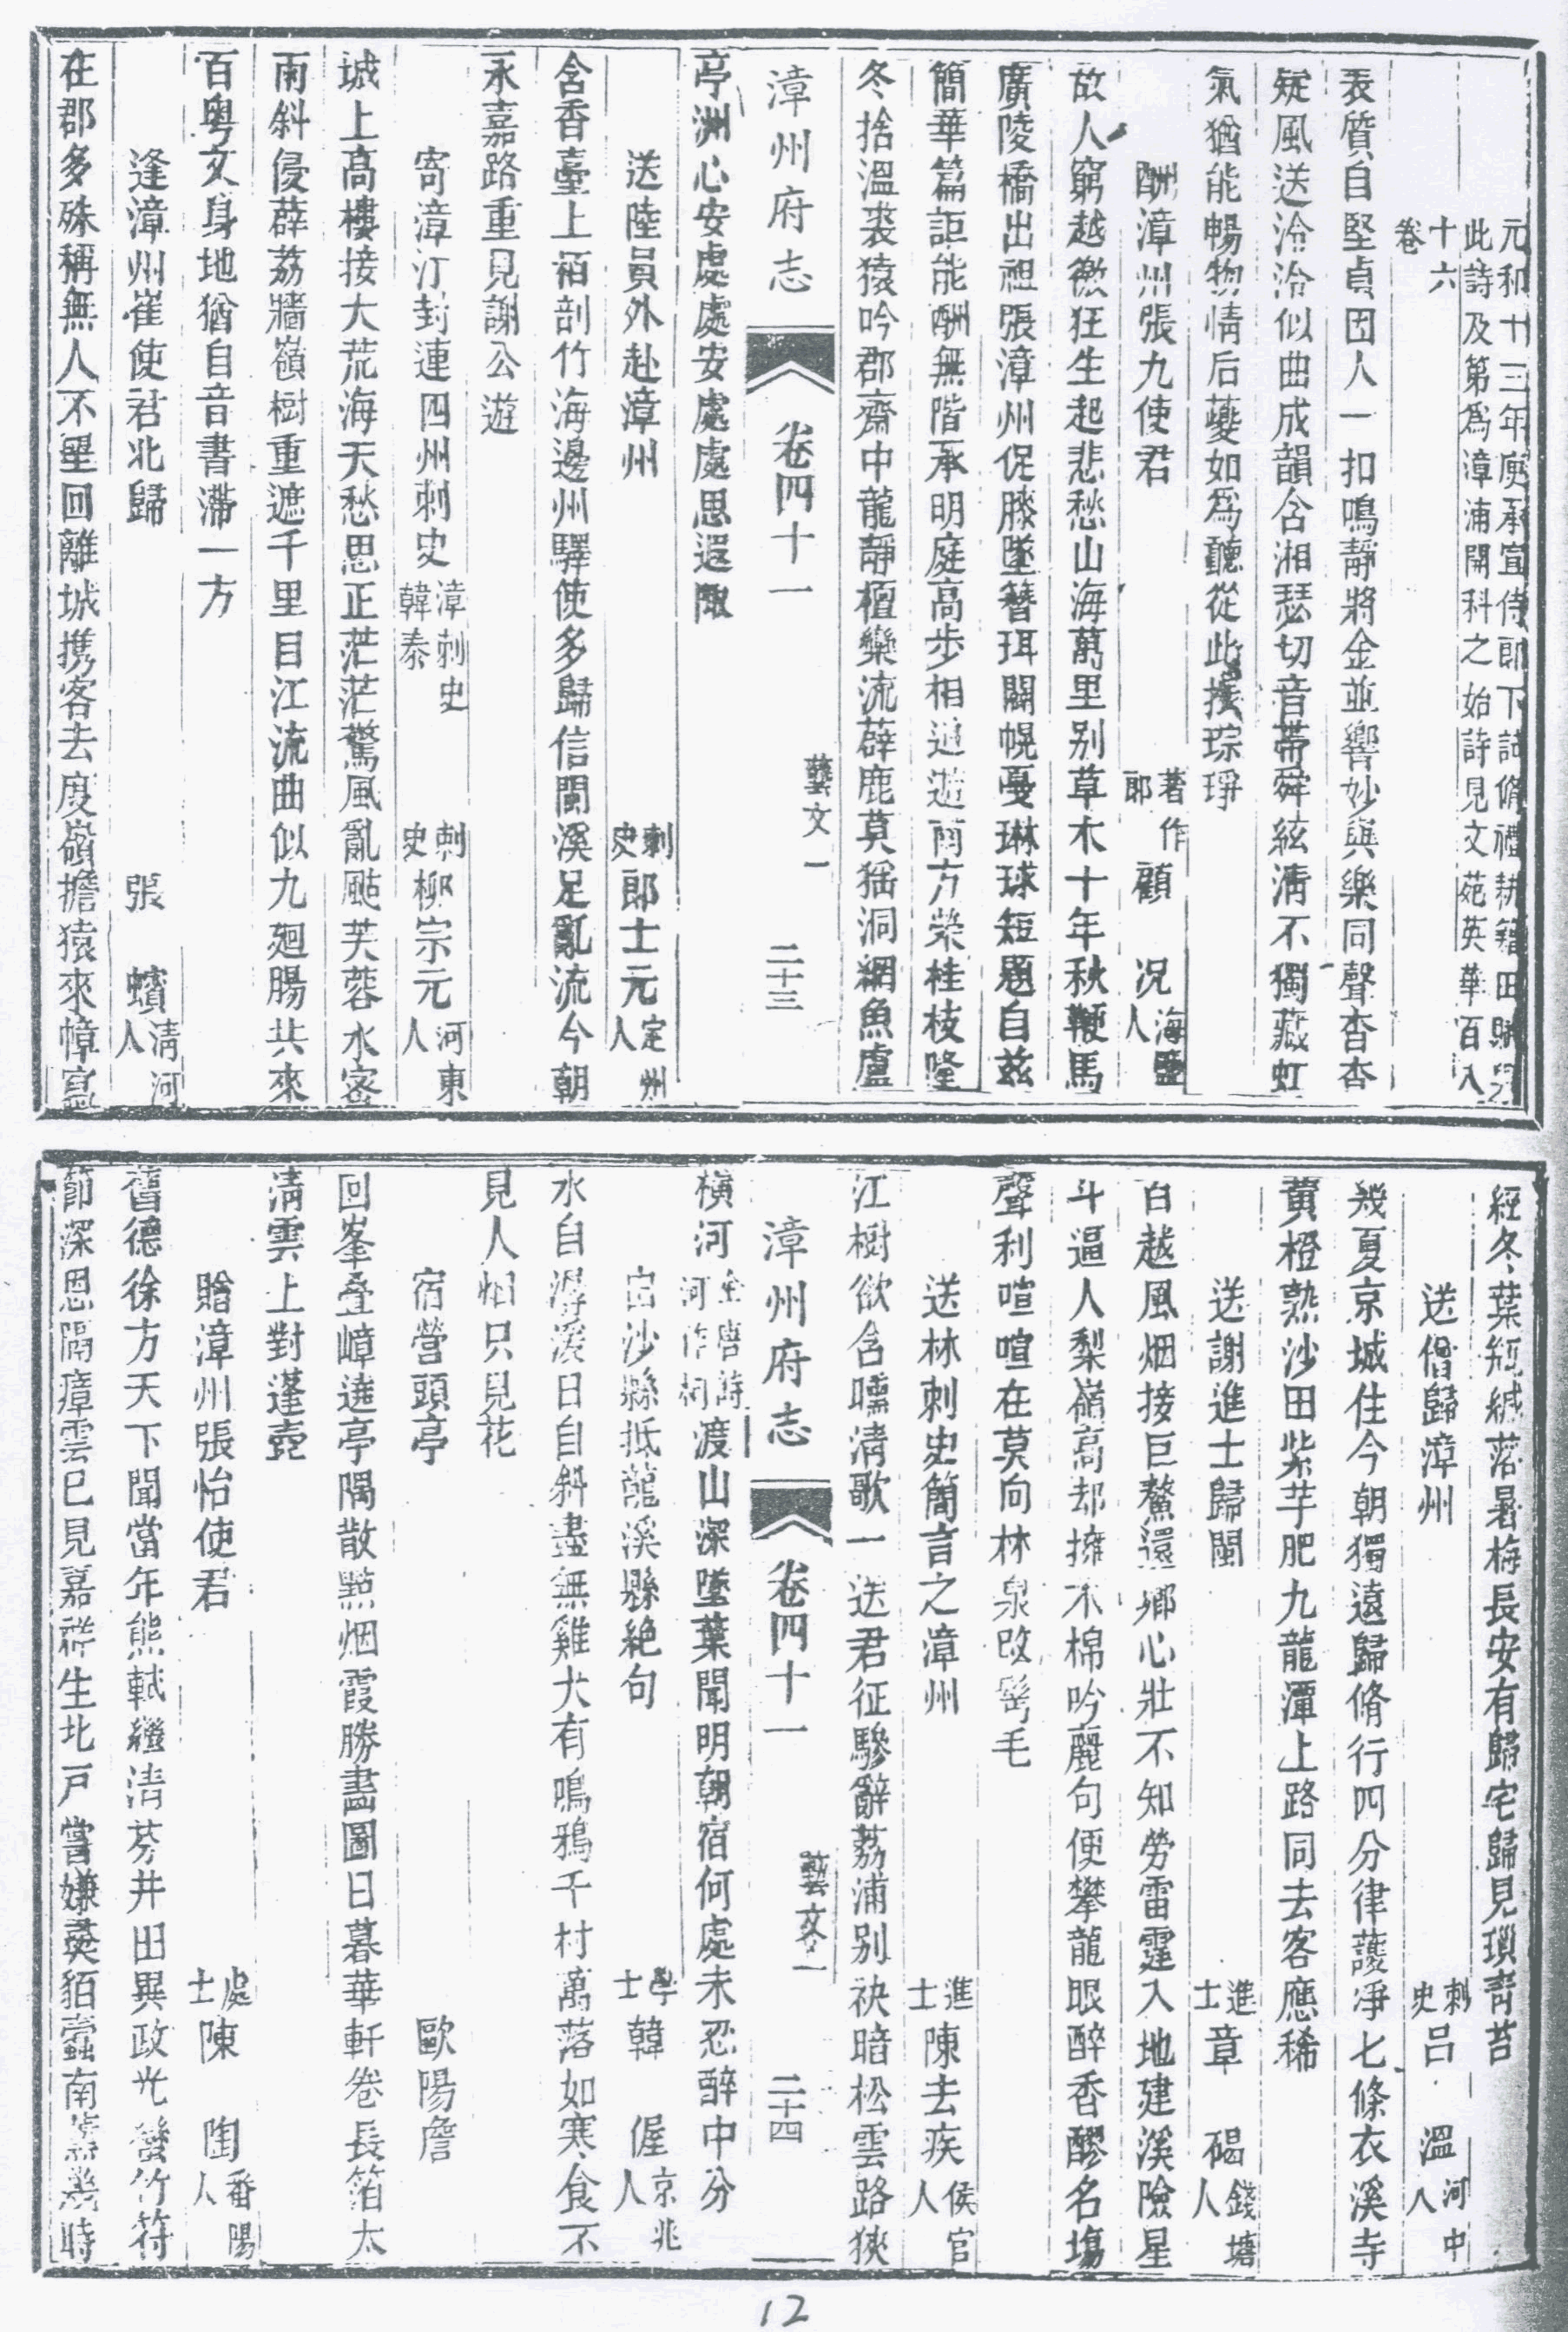 元和十三年庾承宣侍郎下試脩禮耕籍田賜
此詩及第為漳浦開科之始詩見文苑英華百八
十六
卷
表質自堅貞因人一扣鳴靜將金並響妙與樂同聲杳杳
疑風送泠泠似曲成韻含湘瑟切音帶舜絃清不獨藏虹
氣猶能暢物情后夔如為聽從此挍琮琤
酬漳州張九使君　著作郎顧　况海鹽人
故人窮越徼狂生起悲愁山海萬里别草木十年秋鞭馬
廣陵橋出祖張漳州促膝墜簪珥闢幌戛琳球短題自兹
簡華篇詎能酬無階承明庭高步相追遊南方榮桂枝隆
冬捨溫裘猿吟郡齋中龍靜檀欒流薜鹿莫猺洞網魚盧
漳州府志　卷四十一　藝文一　二十三
亭洲心安處處安處處思遐陬
送陸員外赴漳州　刺史郎士元定州人
含香臺上栢剖竹海邊州驛使多歸信閩溪足亂流今朝
永嘉路重見謝公遊
寄漳汀封連四州刺史漳刺史韓泰　刺史柳宗元河東人
城上高樓接大荒海天愁思正茫茫驚風亂颭芙蓉水密
雨斜侵薜荔牆嶺樹重遮千里目江流曲似九廻腸共來
百粤文身地猶自音書滯一方
逢漳州崔使君北歸　張　蠙清河人
在郡多殊稱無人不望回離城携客去度嶺擔猿來幛寫
經冬葉瓶緘落暑梅長安有歸宅歸見瑣青苔
送僧歸漳州　刺史呂　溫河中人
幾夏京城住今朝獨遠歸脩行四分律護凈七條衣溪寺
黄橙熟沙田紫芋肥九龍潭上路同去客應稀
送謝進士歸閩　進士章　碣錢塘人
百越風烟接巨鰲還鄉心壯不知勞雷霆入地建溪險星
斗逼人梨嶺高却擁木棉吟麗句便攀龍眼醉香醪名塲
聲利喧喧在莫向林泉改鬢毛
送林刺史簡言之漳州　進士陳去疾侯官人
江樹欲含曛清歌一送君征驂辭荔浦别袂暗松雲路狹
漳州府志　卷四十一　藝文一　二十四
横河全唐詩河作柯渡山深墜葉聞明朝宿何處未忍醉中分
自沙縣抵龍溪縣絶句　學士韓　偓京兆人
水自潺湲日自斜盡無雞犬有鳴鴉千村萬落如寒食不
見人烟只見花
宿營頭亭　歐陽詹
回峯叠嶂遶亭隅散㸃烟霞勝畵圖日暮華軒卷長箔太
清雲上對蓬壺
贈漳州張怡使君　處士陳　陶番陽人
舊德徐方天下聞當年熊軾繼清芬井田異政光蠻竹符
節深恩隔瘴雲已見嘉祥生北戸嘗嫌蔓貊蠹南薰幾時
12